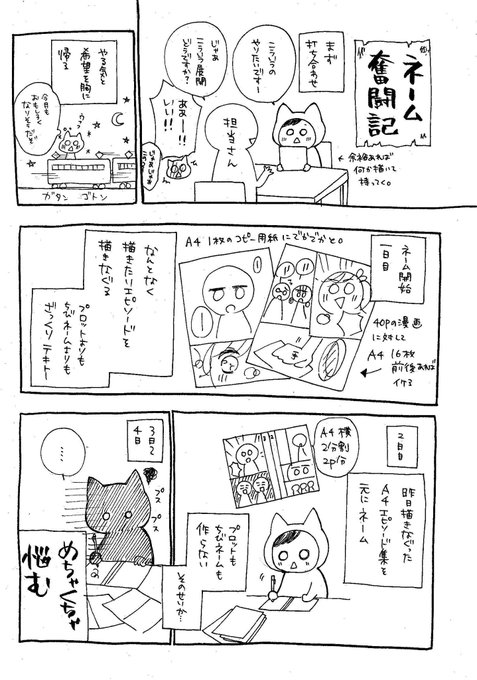 ネーム
奮闘記
まず
打ち合わせ
こういうの
やりたいですー
じゃあ
こういう展開
どうですか?
ああー!!
いい!!
担当さん
じゃあじゃあ
この
余裕あれば
何か描いて
持ってく。
やる気と
希望を胸に
帰る
今回も
おもしろく
なりそうだぞ
ガタン ゴトン
ネーム開始
一日目
A4 1枚のコピー用紙にでかでかと。
40Pの漫画
に対して
A4 16枚
前後あれば
イケる
なんとなく
描きたいエピソードを
描きなぐる
プロットよりも
ちびネームよりも
ざっくりテキトー
2日目
昨日描きなぐった
A4エピソード集を
元にネーム
A4横
2分割
2p分
プロットも
ちびネームも
作らない
そのせいか…
3日〜
4日
…
プス
プス
めちゃくちゃ
悩む